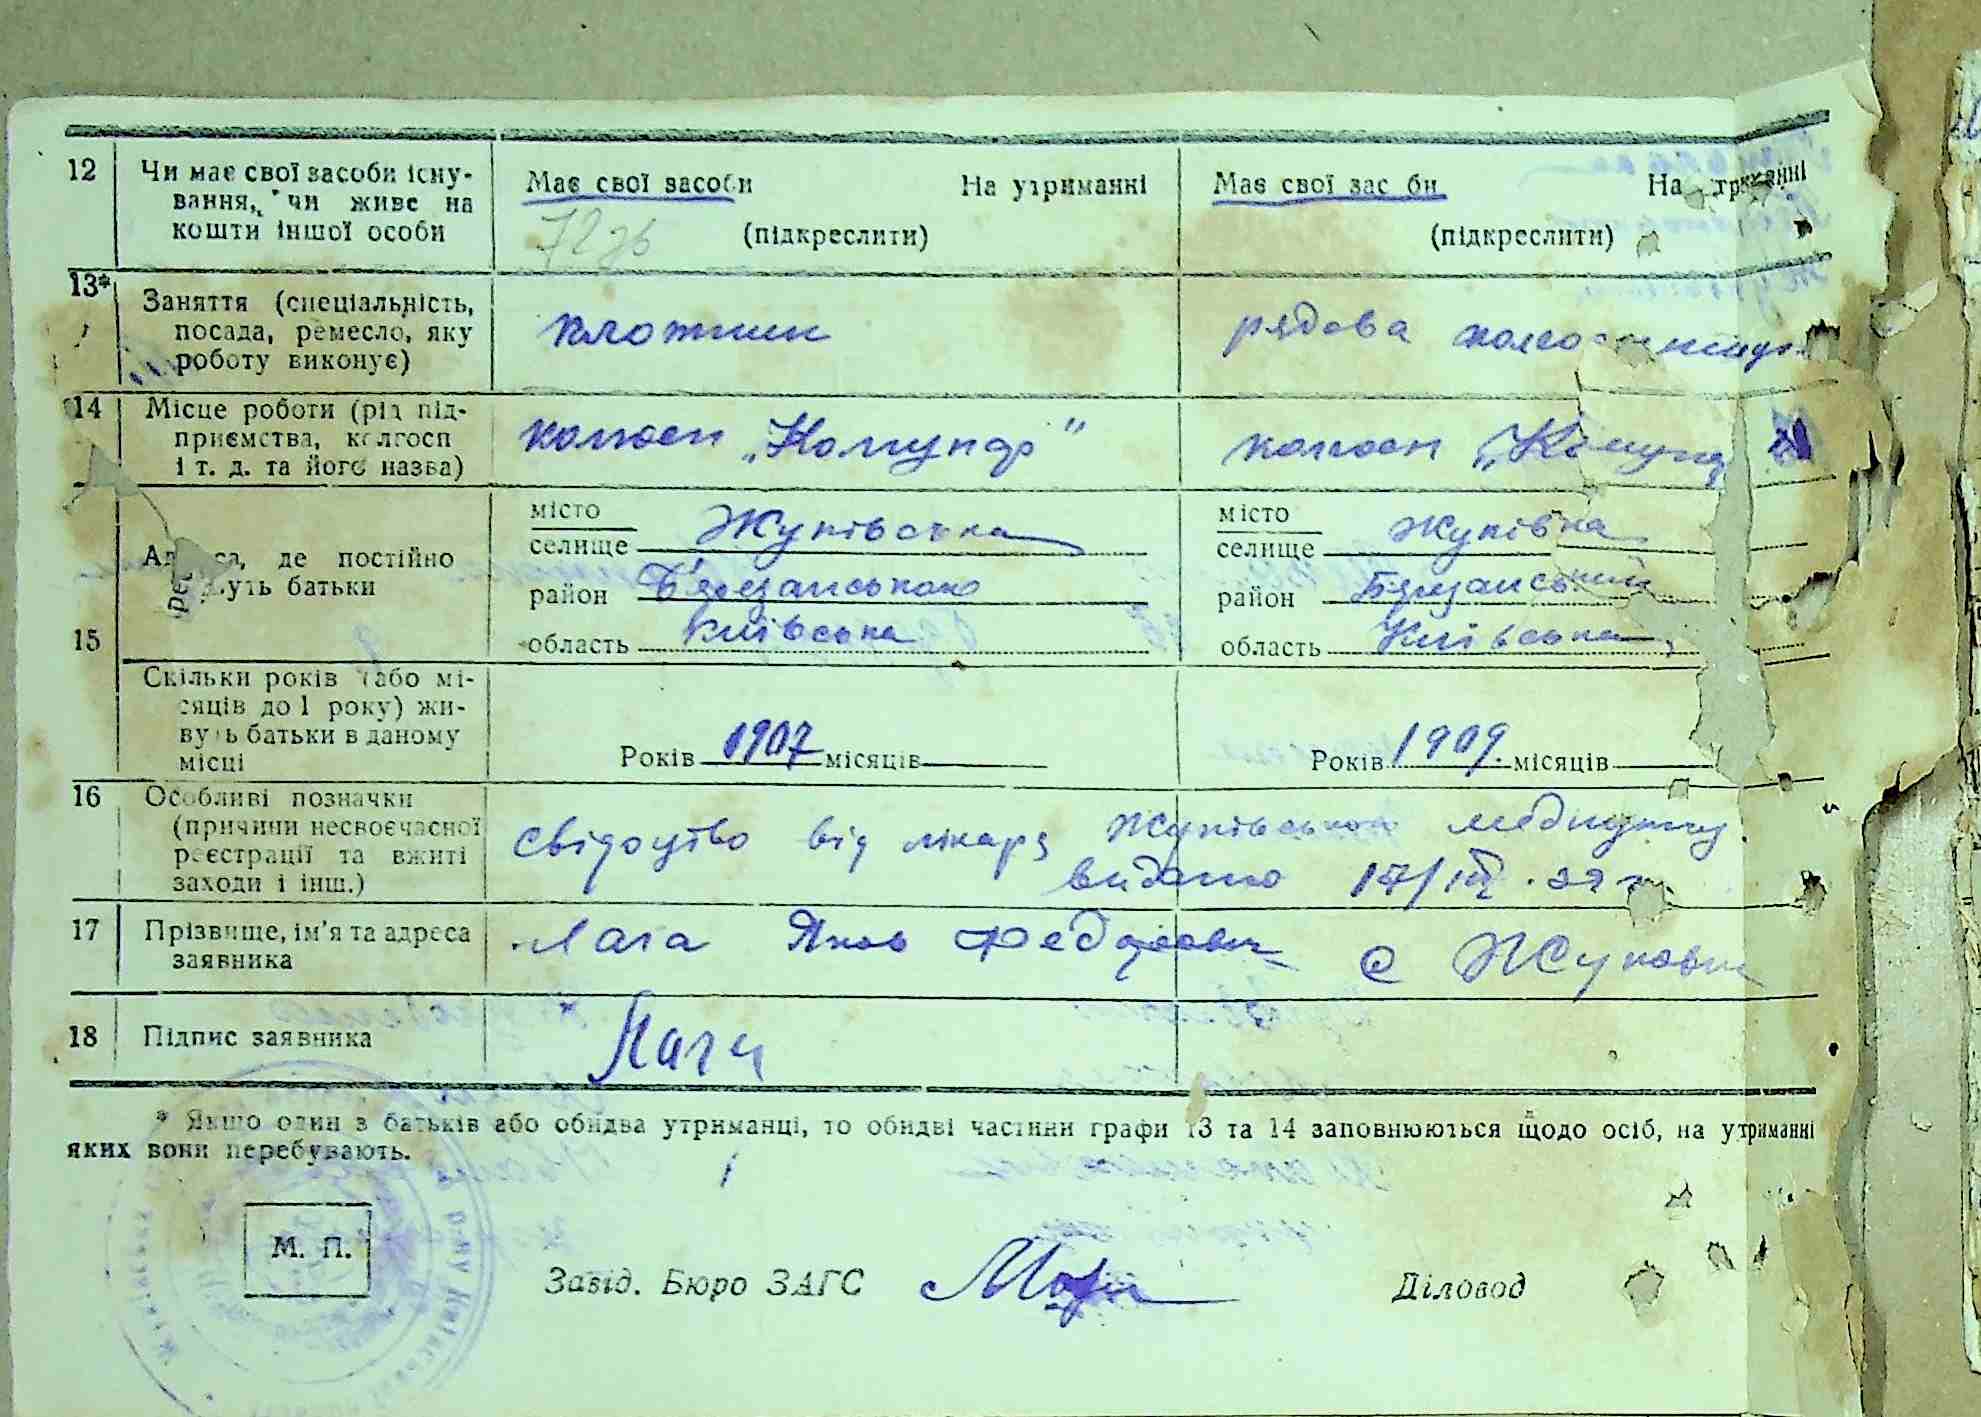 12 Чи має свої засоби існу- Має свої засоби На утриманні Має свої зас би На
вання, чи живе на
кошти іншої особи (підкреслити) (підкреслити)
13* Заняття (спеціальність,
посада, ремесло, яку плотник рядова
роботу виконує)
14 Місце роботи (рід під-
приємства, колгосп колгосп „Комунар" колгосп „Комунар
і т. д. та його назва)
місто Жуківська місто Жуківка
селище селище
де постійно
район Березанського район Березанський
батьки
15 область Київська область Київська
Скільки років (або мі-
сяців до 1 року) жи-
вуть батьки в даному
місці Років 1907 місяців Років 1909. місяців
16 Особливі позначки
(причини несвоєчасної свідоцтво від лікаря Жуківського медпункту.
реєстрації та вжиті видано
заходи і інш.)
17 Прізвище, ім'я та адреса Лага Яков Федорович с Жуковка
заявника
18 Підпис заявника Лага
* Якщо один з батьків або обидва утриманці, то обидві частини графи 13 та 14 заповнюються щодо осіб, на утриманні
яких вони перебувають.
М. П.
Завід. Бюро ЗАГС Діловод